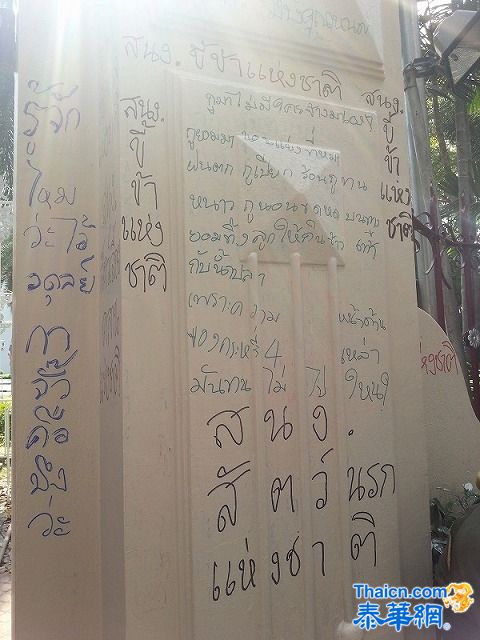 สนง. ขี้ข้าแห่งชาติ
สนง.
ขี้
ข้า
แห่ง
ชาติ
สนง.
ขี้
ข้า
แห่ง
ชาติ
รู้จัก
ไหม
ว่ะไอ้
อดุลย์
กู
นี่
คือ
ว่ะ
กูมาไม่มีใครจ้างมาเอง
กูยอมมานอนแข่งขี้หมา
ฝนตก กูเปียก ร้อนกูทน
หนาว กูนอนขดหม บนทาง
ยอมทิ้งลูกให้กินข้าว
กับน้ำปลา
เพราะความ หน้าด้าน
ของกระหรี่ 4 เหล่า
มันทนไม่ไปไหน
สนง.
สัตว์นรก
แห่งชาติ
แห่งชาติ
Thaicn.com
泰華網